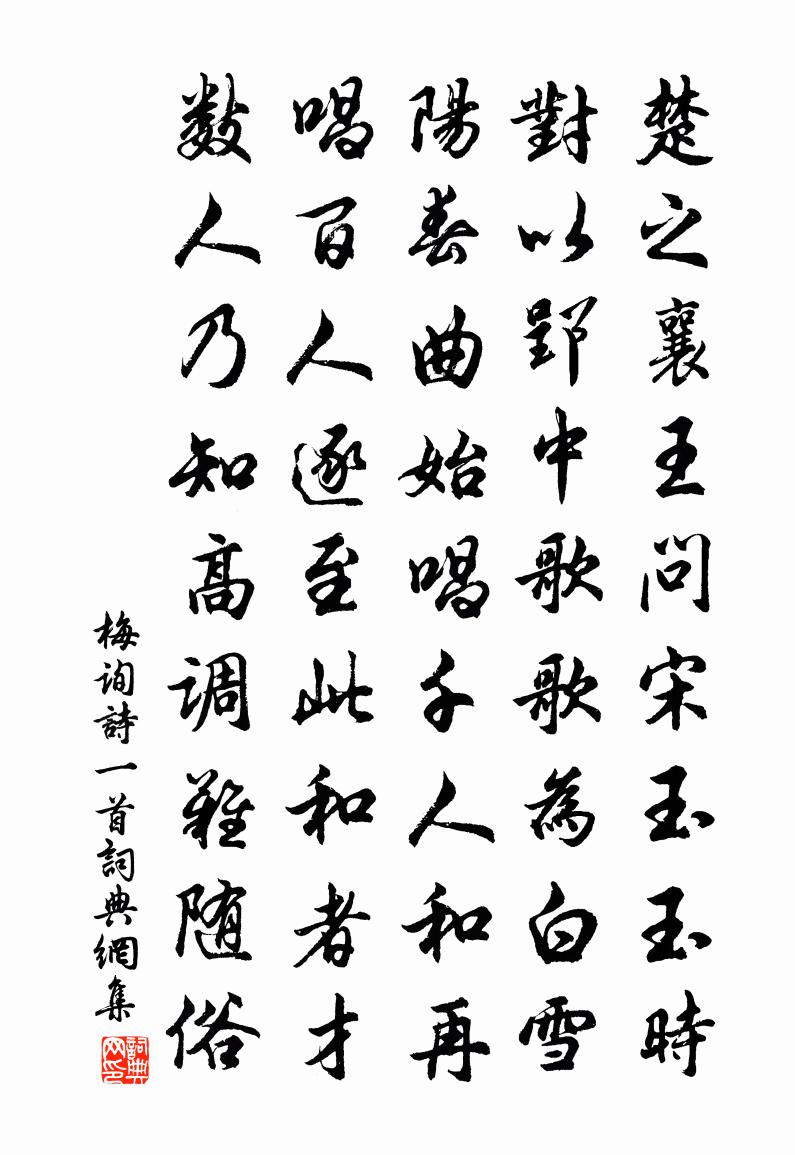 楚之襄王問宋玉玉時
對以郢中歌歌為白雪
陽春曲始唱千人和再
唱百人逐至此和者才
数人乃知高調難随俗
梅詢詩一首詞典網集
詞典网印